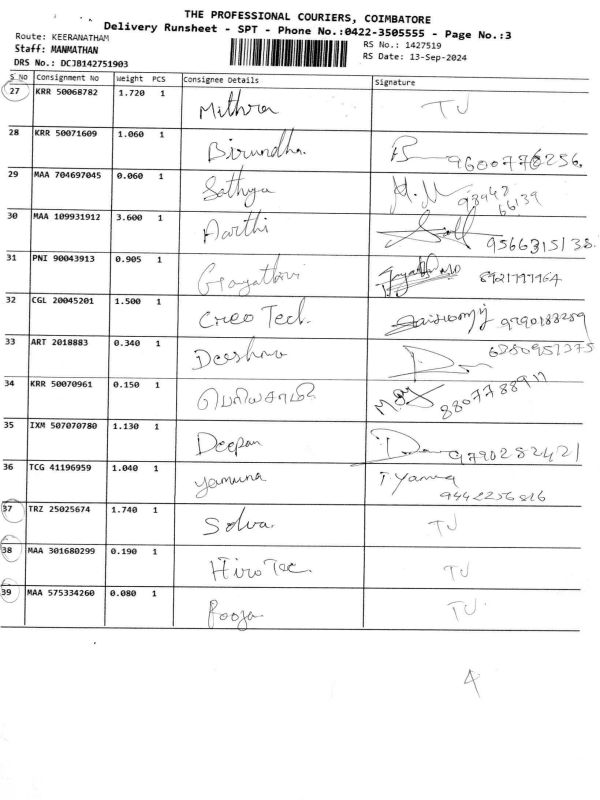 THE PROFESSIONAL COURIERS, COIMBATORE
Delivery Runsheet - SPT - Phone No.:0422-3505555 - Page No.:3
Route: KEERANATHAM
RS No.: 1427519
Staff: MANMATHAN
RS Date: 13-Sep-2024
DRS No.: DCJB142751903
S No Consignment No Weight PCS Consignee Details Signature
27 KRR 50068782 1.720 1 Mithra TJ
28 KRR 50071609 1.060 1 Birundha. 9600776256.
29 MAA 704697045 0.060 1 Sathya 93942 66139
30 MAA 109931912 3.600 1 Aarthi 9566315138.
31 PNI 90043913 0.905 1 Gayathri 8921797964
32 CGL 20045201 1.500 1 Creo Tech. 9790183289
33 ART 2018883 0.340 1 6380951375
34 KRR 50070961 0.150 1 பெரியசாமி 8807788911
35 IXM 507070780 1.130 1 Deepan 9790282421
36 TCG 41196959 1.040 1 Yamuna T. Yamuna 9442256816
37 TRZ 25025674 1.740 1 Selva. TJ
38 MAA 301680299 0.190 1 Hiro Tec TJ
39 MAA 575334260 0.080 1 Pooja TJ
4